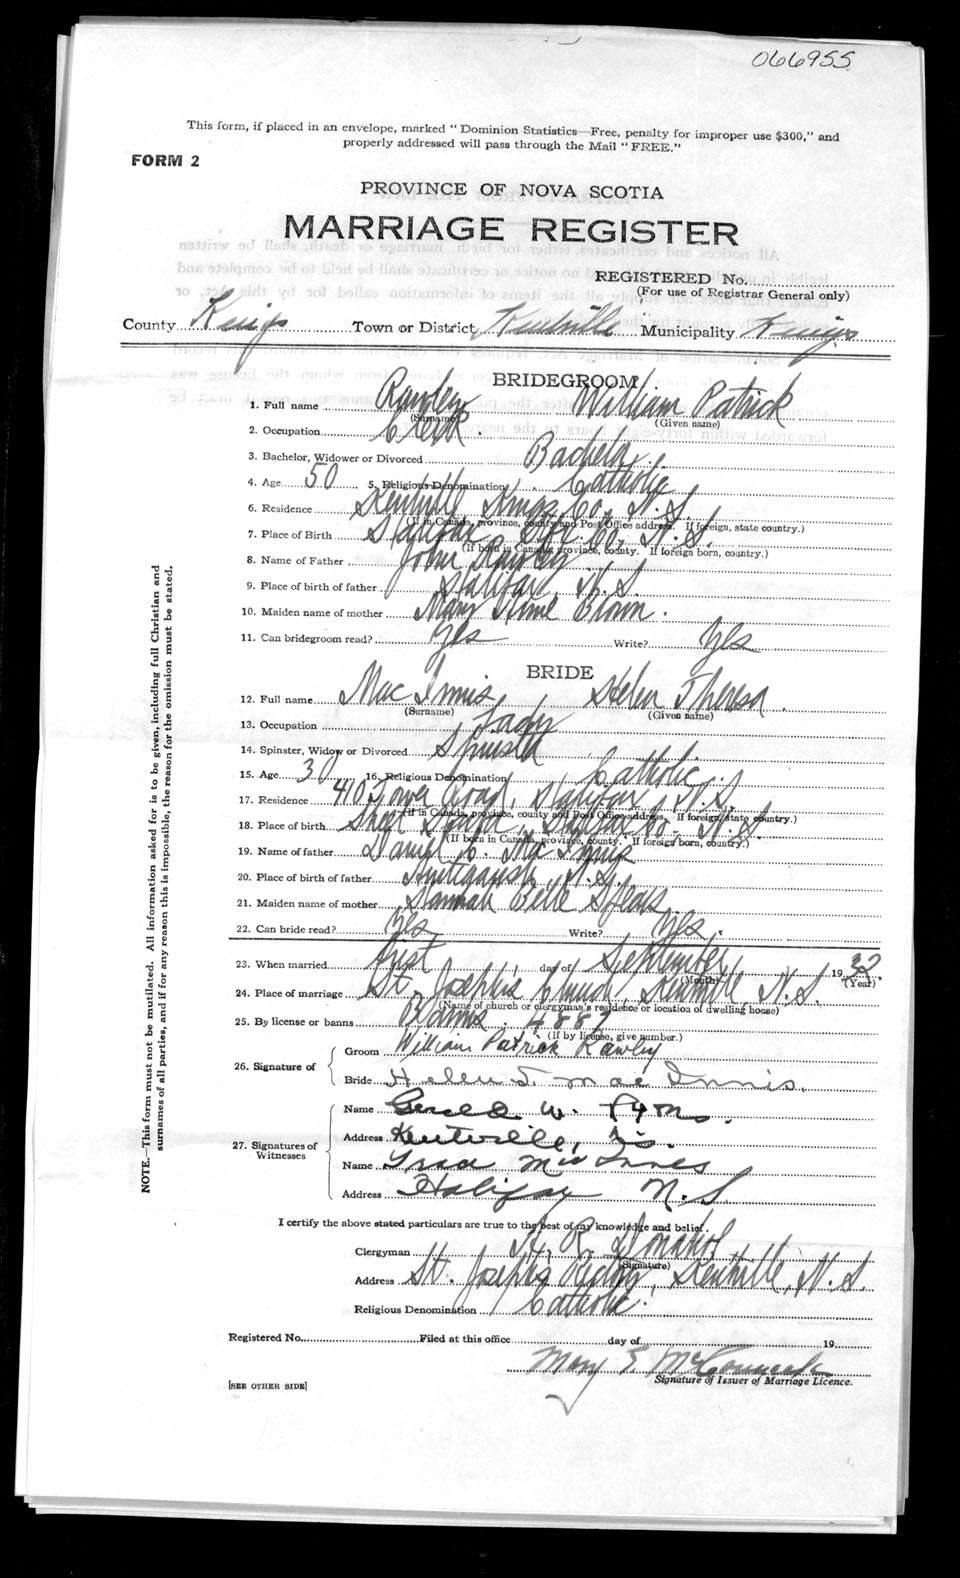 066955
This form, if placed in an envelope, marked "Dominion Statistics—Free, penalty for improper use $300," and
properly addressed will pass through the Mail "FREE."
FORM 2
PROVINCE OF NOVA SCOTIA
MARRIAGE REGISTER
REGISTERED No.
(For use of Registrar General only)
County Kings Town or District Kentville Municipality Kings
BRIDEGROOM
1. Full name Rawley William Patrick
(Surname) (Given name)
2. Occupation Clerk.
3. Bachelor, Widower or Divorced Bachelor.
4. Age 50 5. Religious Denomination Catholic
6. Residence Kentville Kings Co. N.S.
(If in Canada, province, county and Post Office address. If foreign, state country.)
7. Place of Birth Halifax, Hfx Co. N.S.
(If born in Canada, province, county. If foreign born, country.)
8. Name of Father John Rawley
9. Place of birth of father Halifax, N.S.
10. Maiden name of mother Mary Brown.
11. Can bridegroom read? Yes Write? Yes
BRIDE
12. Full name Mac Innis Helen Theresa.
(Surname) (Given name)
13. Occupation Lady
14. Spinster, Widow or Divorced Spinster
15. Age 30 16. Religious Denomination Catholic.
17. Residence 410 Tower Road, Halifax N.S.
(If in Canada, province, county and Post Office address. If foreign, state country.)
18. Place of birth Sheet Harbor, Halifax Co. N.S.
(If born in Canada, province, county. If foreign born, country.)
19. Name of father Daniel Mac Innis
20. Place of birth of father Antigonish, N.S.
21. Maiden name of mother Hannah Belle Spears
22. Can bride read? Yes Write? Yes.
23. When married First day of September 1932.
(Month) (Year)
24. Place of marriage St. Joseph's Church Kentville, N.S.
(Name of church or clergyman's residence or location of dwelling house)
25. By license or banns Banns. 4887
(If by license, give number.)
26. Signature of
Groom William Patrick Rawley
Bride Helen T. Mac Innis.
27. Signatures of Witnesses
Name Gerald W.
Address Kentville, N.S.
Name Mac Innes
Address Halifax N.S
I certify the above stated particulars are true to the best of my knowledge and belief.
Clergyman R. Donahoe
(Signature)
Address St. Joseph's Kentville, N.S.
Religious Denomination Catholic.
Registered No. Filed at this office day of 19
Mary E. McCormick
Signature of Issuer of Marriage Licence.
[SEE OTHER SIDE]
NOTE.—This form must not be mutilated. All information asked for is to be given, including full Christian and
surnames of all parties, and if for any reason this is impossible, the reason for the omission must be stated.